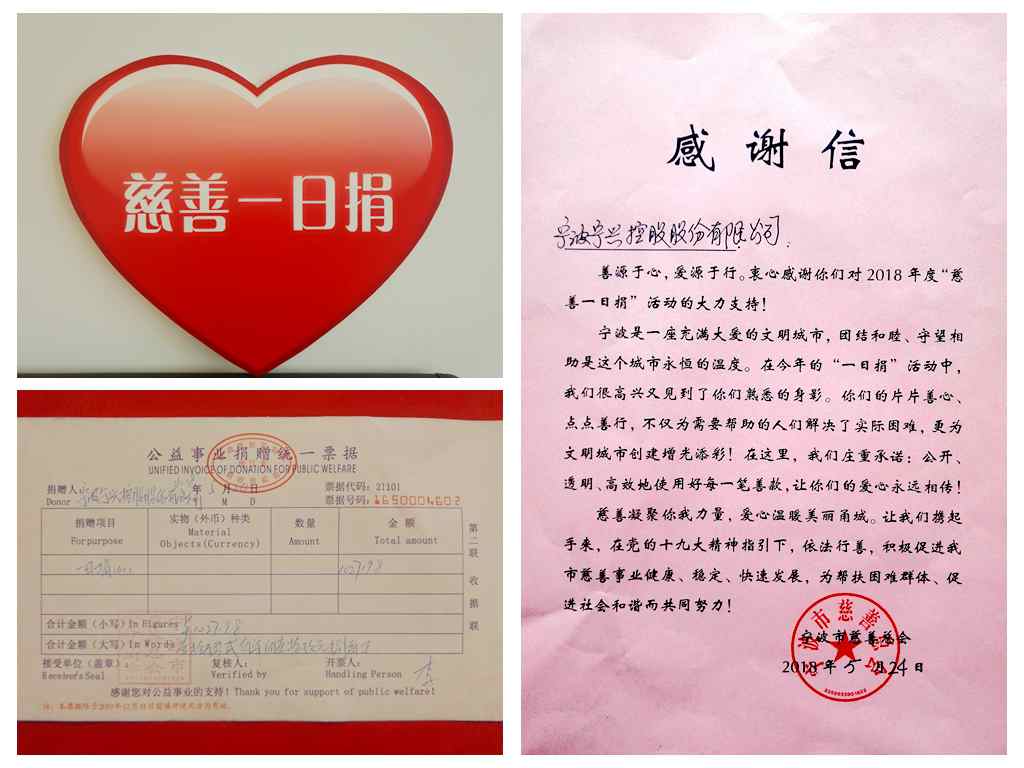 慈善一日捐
公益事业捐赠统一票据
UNIFIED INVOICE OF DONATION FOR PUBLIC WELFARE
捐赠人 年 5 月 日 票据代码：27101
Donor Y M D 票据号码：
捐赠项目 实物（外币）种类 数量 金 额
For purpose Material Objects(Currency) Amount Total amount
一日捐
第二联 收据联
合计金额（小写）In Figures
合计金额（大写）In Words
接受单位（盖章）： 复核人： 开票人：
Receiver's Seal Verified by Handling Person
感谢您对公益事业的支持！Thank you for support of public welfare!
感谢信
宁波宁兴控股股份有限公司
善源于心，爱源于行。衷心感谢你们对 2018 年度“慈
善一日捐”活动的大力支持！
宁波是一座充满大爱的文明城市，团结和睦、守望相
助是这个城市永恒的温度。在今年的“一日捐”活动中，
我们很高兴又见到了你们熟悉的身影。你们的片片善心、
点点善行，不仅为需要帮助的人们解决了实际困难，更为
文明城市创建增光添彩！在这里，我们庄重承诺：公开、
透明、高效地使用好每一笔善款，让你们的爱心永远相传！
慈善凝聚你我力量，爱心温暖美丽甬城。让我们携起
手来，在党的十九大精神指引下，依法行善，积极促进我
市慈善事业健康、稳定、快速发展，为帮扶困难群体、促
进社会和谐而共同努力！
宁波市慈善总会
2018 年 5 月 24 日